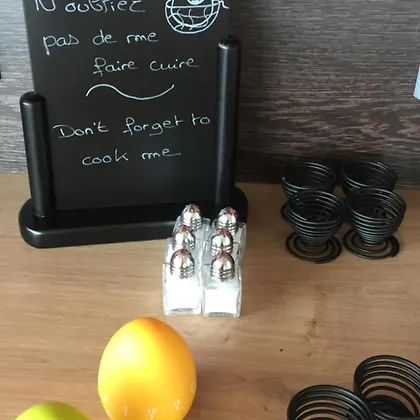 N'oubliez
pas de me
faire cuire
Don't forget to
cook me